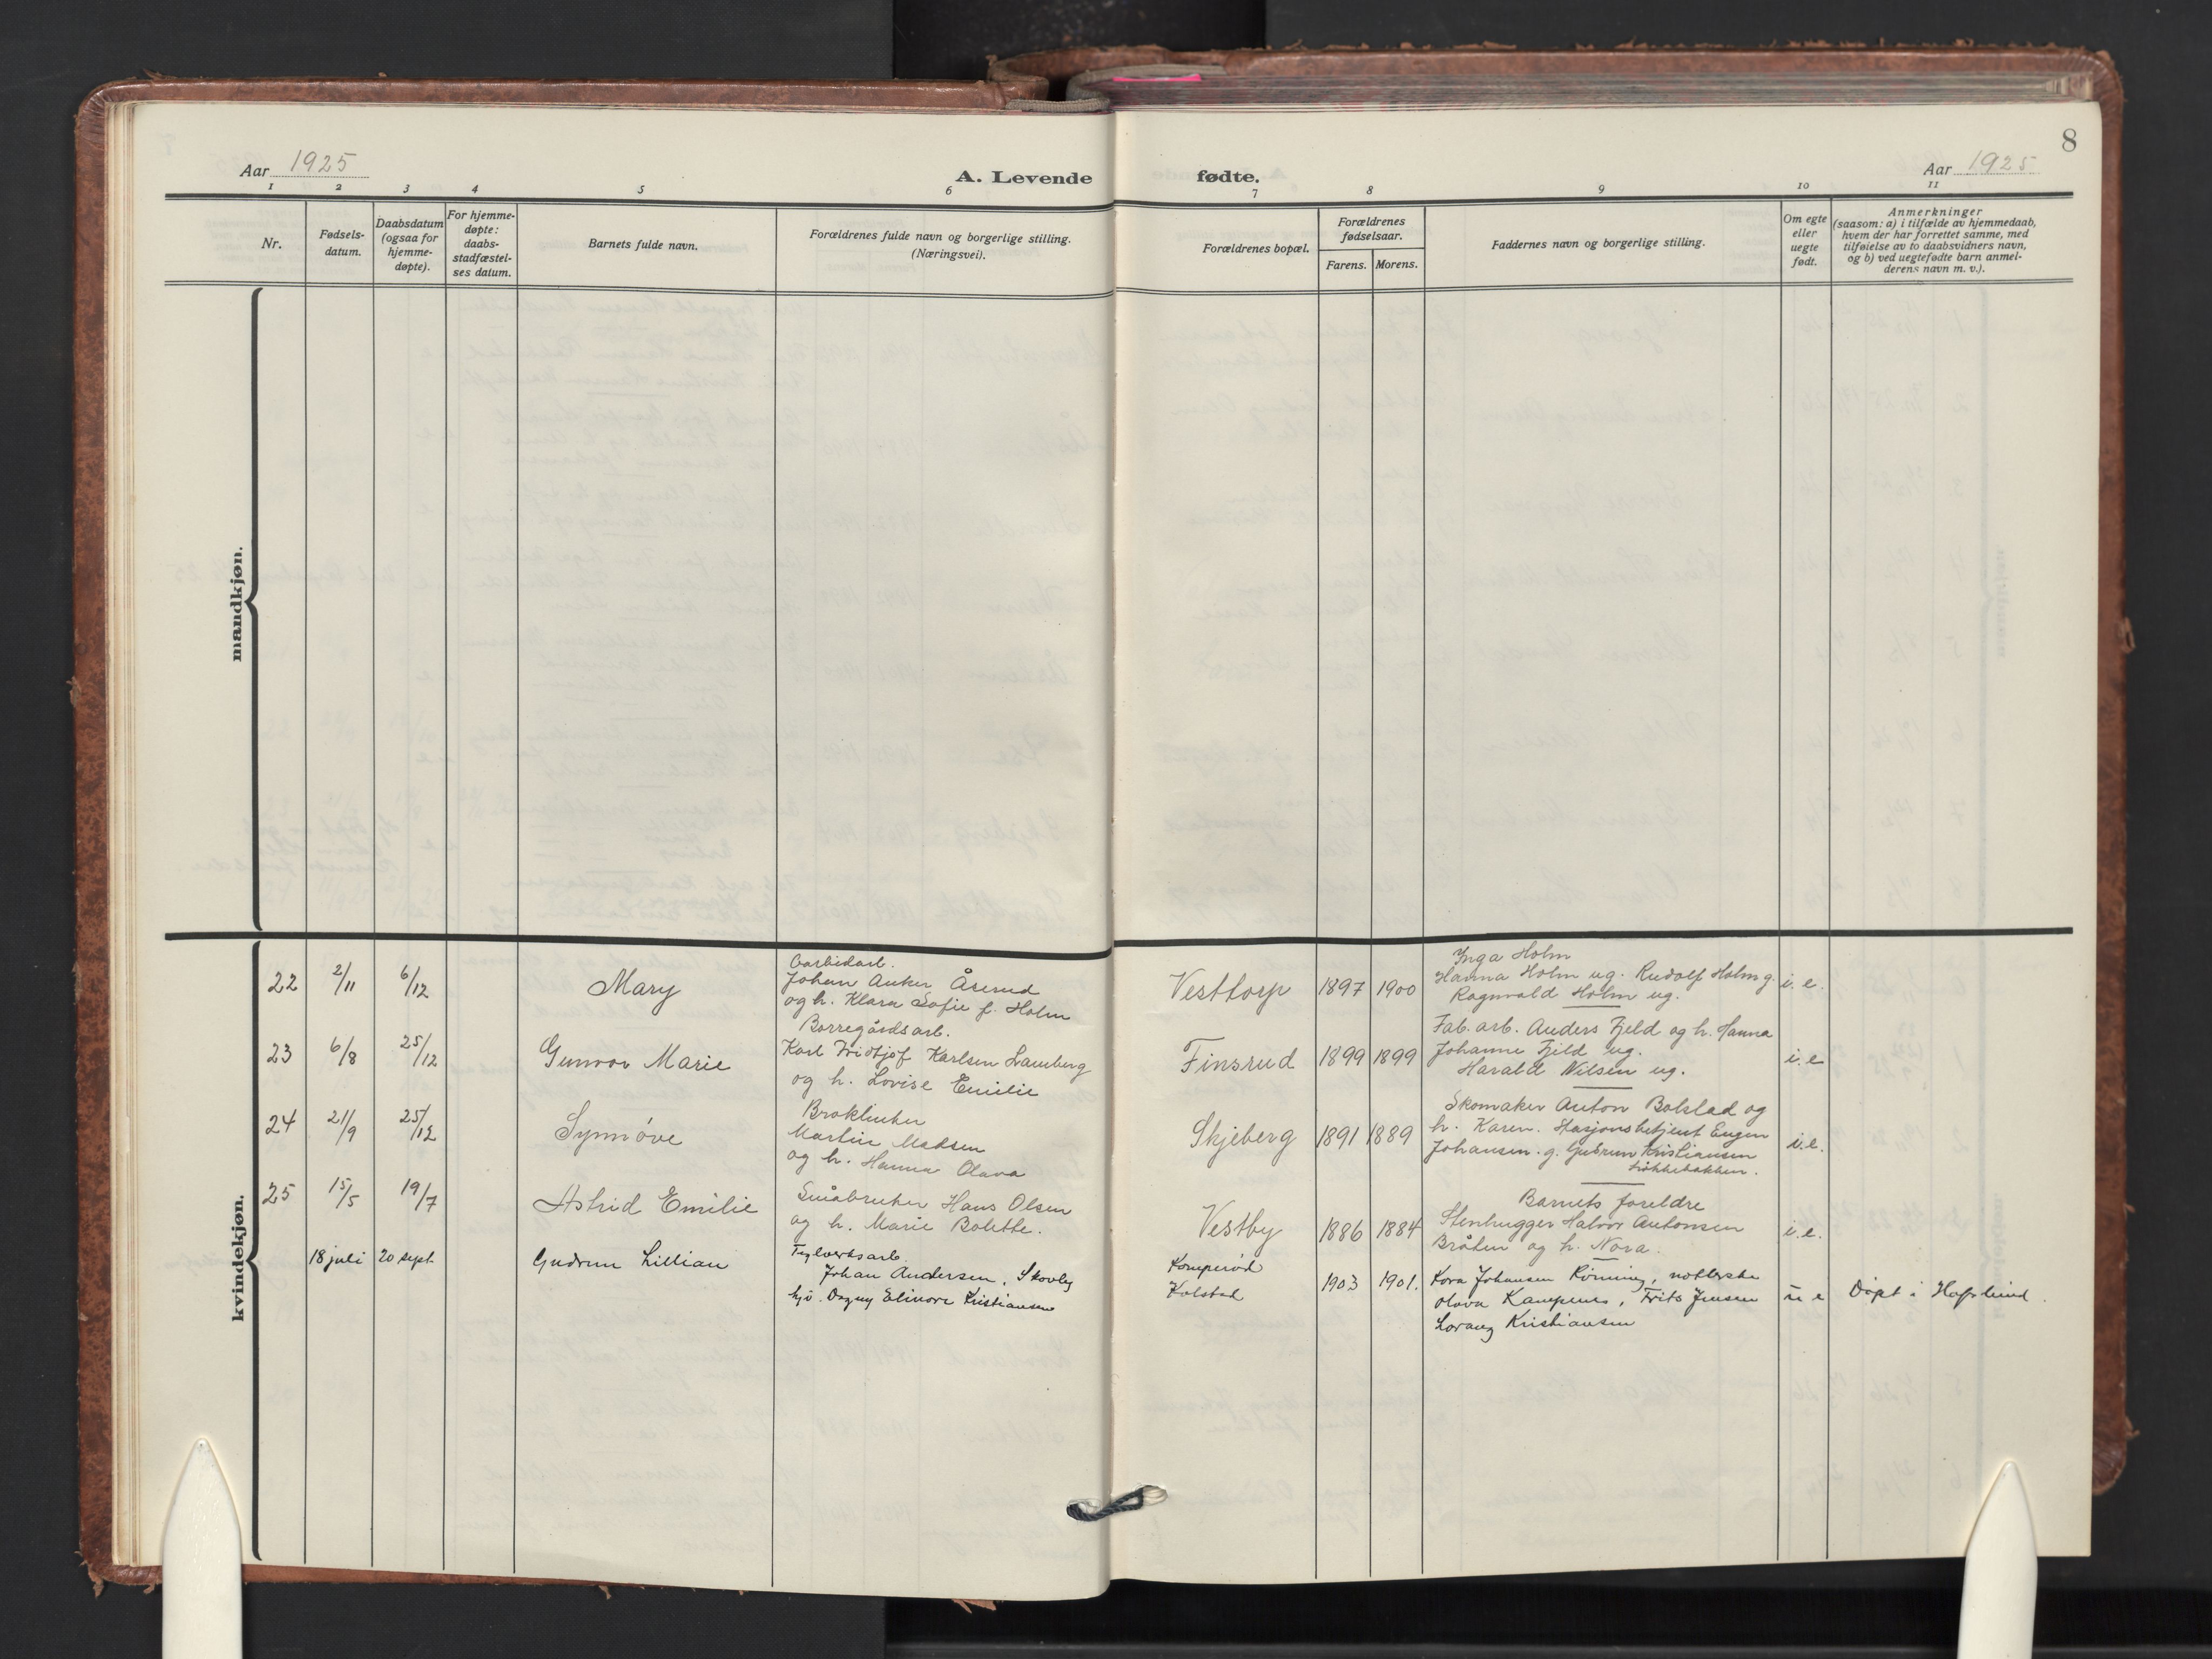 8
Aar 1925
A. Levende
fødte.
Aar 1925
1 2 3 4 5 6 7 8 9 10 11
Nr.
Fødsels-
datum.
Daabsdatum
(ogsaa for
hjemme-
døpte).
For hjemme-
døpte:
daabs-
stadfæstel-
ses datum.
Barnets fulde navn.
Forældrenes fulde navn og borgerlige stilling.
(Næringsvei).
Forældrenes bopæl.
Forældrenes
fødselsaar.
Farens. Morens.
Faddernes navn og borgerlige stilling.
Om egte
eller
uegte
født.
Anmerkninger
(saasom: a) i tilfælde av hjemmedaab,
hvem der har forrettet samme, med
tilføielse av to daabsvidners navn,
og b) ved uegtefødte barn anmel-
derens navn m. v.).
mandkjøn.
kvindekjøn.
22 2/11 6/12 Mary
Carbidarb.
Johan Anker Åserud
og h. Klara Sofie f. Holm
Vesttorp 1897 1900
Inga Holm
Hanna Holm ug. Rudolf Holm g.
Ragnvald Holm ug.
i. e.
23 6/8 25/12 Gunvor Marie
Borregårdsarb.
Karl Fridtjof Karlsen Lamberg
og h. Lovise Emilie
Finsrud 1899 1899
Fab. arb. Anders Fjeld og h. Hanna
Johanne Fjeld ug.
Harald Nilsen ug.
i. e
24 21/9 25/12 Synnøve
Martin Madsen
og h. Hanna Olava
Skjeberg 1891 1889
Skomaker Anton Bolstad og
h. Karen. Stasjonsbetjent Eugen
Johansen. g. Gudrun Kristiansen
Løkkebakken.
i. e.
25 15/5 19/7 Astrid Emilie
Småbruker Hans Olsen
og h. Marie Bolette.
Vestby 1886 1884
Barnets foreldre
Stenhugger Halvor Antonsen
Bråten og h. Nora.
i. e.
18 juli 20 sept Gudrun Lillian
Teglverksarb.
Johan Andersen, Skovby
hj. Dagny Elinore Kristiansen
Komperød
Kolstad
1903 1901.
Kora Johansen Rønning,
Olava Kampenes, Frits Jensen
Lorang Kristiansen
u e Døpt i Hafslund.